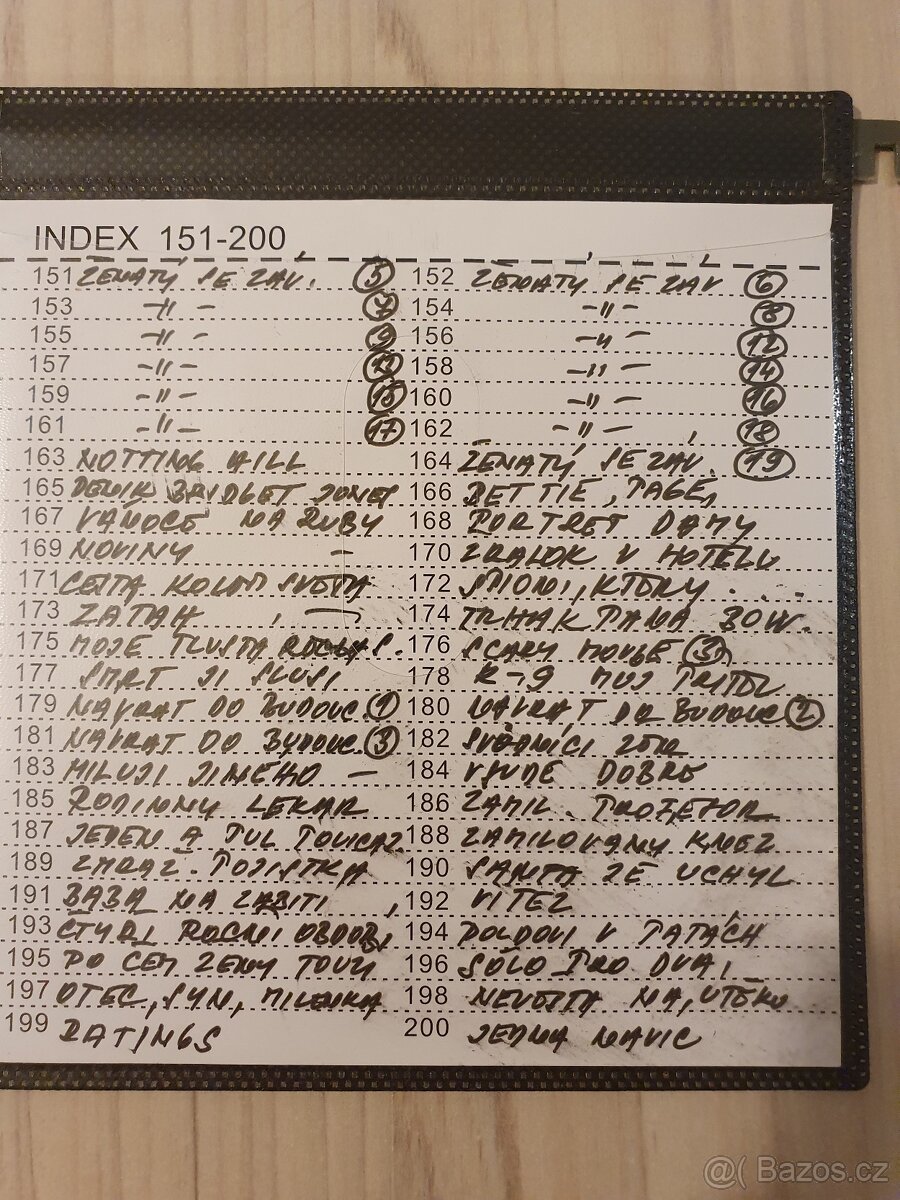 INDEX 151-200
151 ŽENATÝ SE ZÁV. 5 152 ŽENATÝ SE ZÁV 6
153 -"- 154 -"- 8
155 -"- 9 156 -"- 12
157 -"- 13 158 -"- 14
159 -"- 15 160 -"- 16
161 -"- 17 162 -"- 18
163 NOTTING HILL 164 ŽENATÝ SE ZÁV. 19
165 DENIK BRIDGET JONES 166 BETTIE, PAGE,
167 VANOCE NA RUBY 168 PORTRET DAMY
169 NOVINY - 170 ZRALOK V HOTELU
171 CESTA KOLEM SVETA 172 SPIONI, KTORY . . .
173 ZATAH 174 TRHAK PANA BOW.
175 MOJE TLUSTA 176 SCARY MOVIE 3
177 SMRT JI SLUSI 178 K-9 MUJ PRITEL
179 NAVRAT DO BUDOUC. 1 180 NAVRAT DO BUDOUC 2
181 NAVRAT DO BUDOUC. 3 182 SVĚDNÍCI
183 MILUJI JINEHO - 184 VSUDE DOBRE
185 RODINNY LEKAR 186 ZAMIL. PROFESOR
187 JEDEN A PUL POLICAJ. 188 ZAMILOVANY KNEZ
189 ZMRAZ. POJISTKA 190 SANTA JE UCHYL
191 BABA NA ZABITI 192 VITEZ
193 ČTYRI ROCNI OBDOBI 194 POLDOVI V PATÁCH
195 PO CEM ZENY TOUZI 196 SOLO PRO DVA
197 OTEC, SYN, MILENKA 198 NEVESTA NA, UTĚKU
199 RATINGS 200 JEDNA NAVIC
@( Bazos.cz